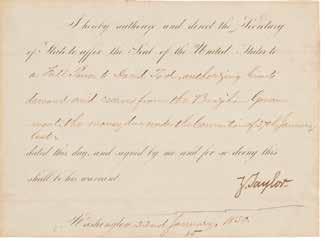 I hereby authorize and direct the Secretary
of State to affix the Seal of the United States to
a Full Power to David Tod, authorizing him to
demand and receive from the Brazilian Govern
ment the money due under the Convention of 27th January
last
dated this day, and signed by me and for so doing this
shall be his warrant.
Z. Taylor.
Washington 22nd January, 1850.